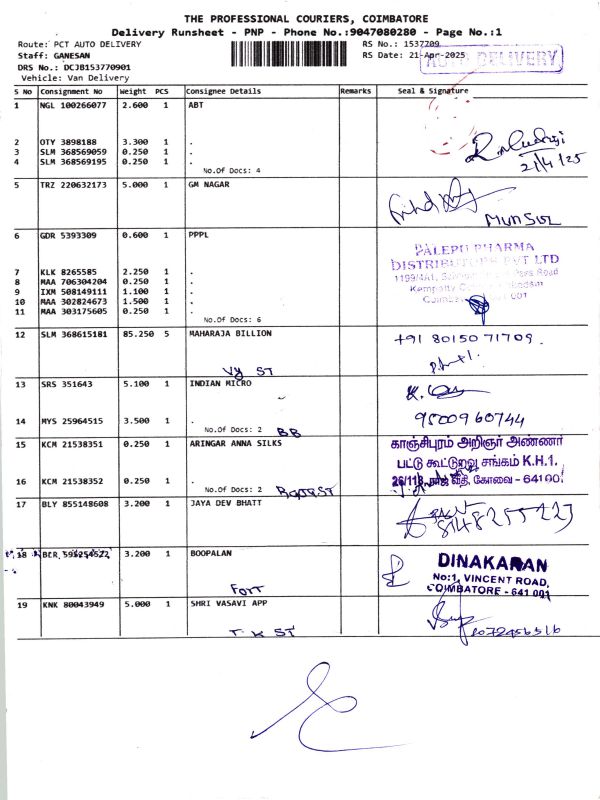 THE PROFESSIONAL COURIERS, COIMBATORE
Delivery Runsheet - PNP - Phone No.:9047080280 - Page No.:1
Route: PCT AUTO DELIVERY
RS No.: 1537709
Staff: GANESAN
RS Date: 21-Apr-2025
AUTO DELIVERY
DRS No.: DCJB153770901
Vehicle: Van Delivery
S No Consignment No Weight PCS Consignee Details Remarks Seal & Signature
1 NGL 100266077 2.600 1 ABT
2 OTY 3898188 3.300 1 .
3 SLM 368569059 0.250 1 .
4 SLM 368569195 0.250 1 .
21/4/25
No.Of Docs: 4
5 TRZ 220632173 5.000 1 GM NAGAR
6 GDR 5393309 0.600 1 PPPL
PALEPU PHARMA
DISTRIBUTORS PVT LTD
7 KLK 8265585 2.250 1 .
8 MAA 706304204 0.250 1 .
9 IXM 508149111 1.100 1 .
10 MAA 302824673 1.500 1 .
11 MAA 303175605 0.250 1 .
No.Of Docs: 6
12 SLM 368615181 85.250 5 MAHARAJA BILLION
+91 80150 71709.
Vy ST
13 SRS 351643 5.100 1 INDIAN MICRO
14 MYS 25964515 3.500 1 .
9500960744
No.Of Docs: 2 BB
15 KCM 21538351 0.250 1 ARINGAR ANNA SILKS
காஞ்சிபுரம் அறிஞர் அண்ணா
பட்டு கூட்டுறவு சங்கம் K.H.1.
16 KCM 21538352 0.250 1 .
ராஜ வீதி, கோவை - 641001
No.Of Docs: 2
17 BLY 855148608 3.200 1 JAYA DEV BHATT
18 BCR 591254522 3.200 1 BOOPALAN
DINAKARAN
No:1, VINCENT ROAD,
COIMBATORE - 641 001
Fort
19 KNK 80043949 5.000 1 SHRI VASAVI APP
T K ST